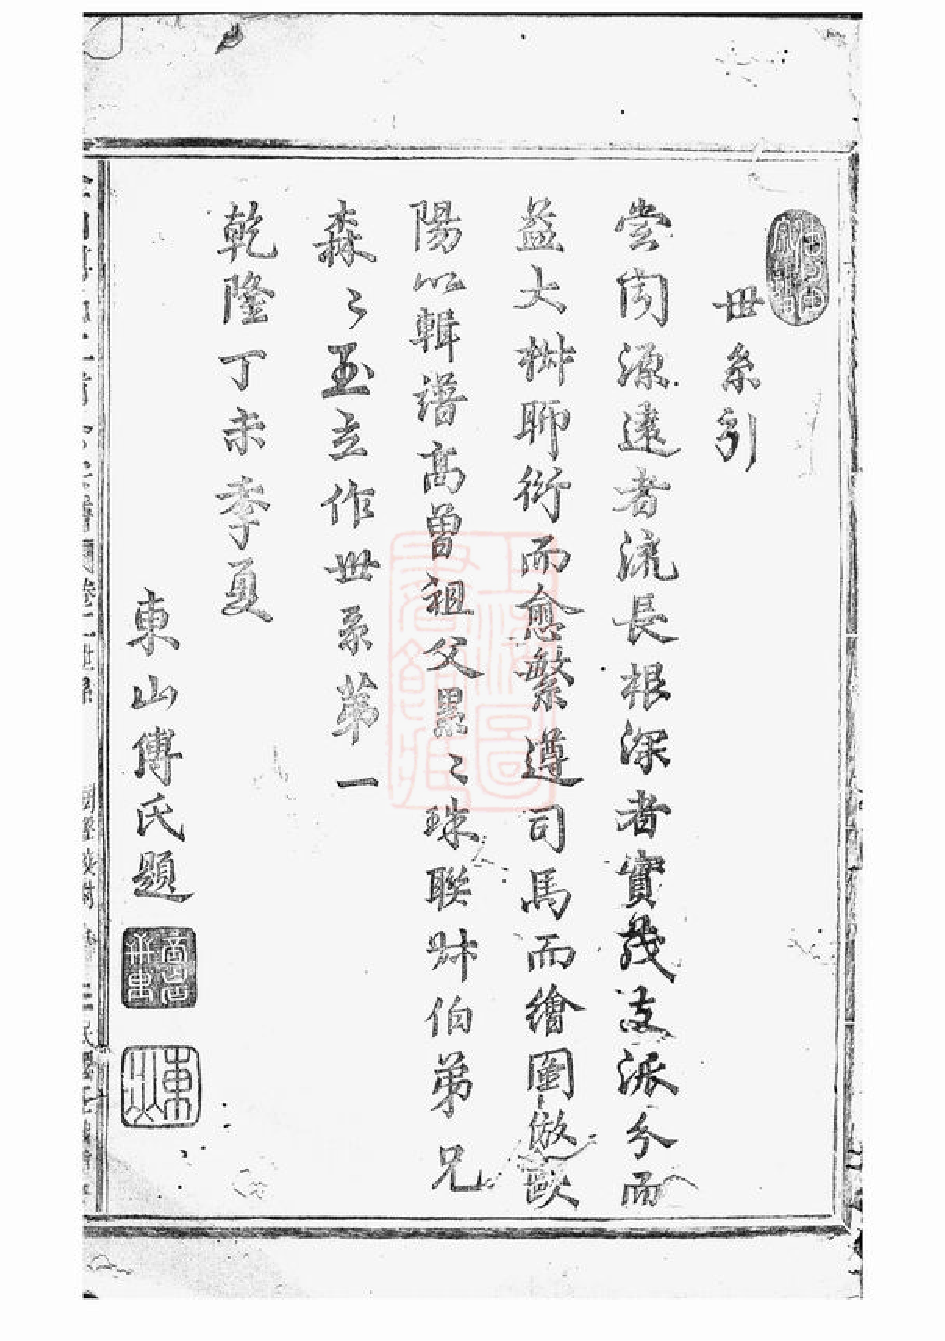 世系引
尝闻源遠者流長根深者實茂支派分而
益大椒聊衍而愈繁遵司馬而繪圖倣歐
陽以輯譜高曾祖父累〻珠聯叔伯弟兄
森〻玉立作世系第一
乾隆丁未季夏
東山傅氏題